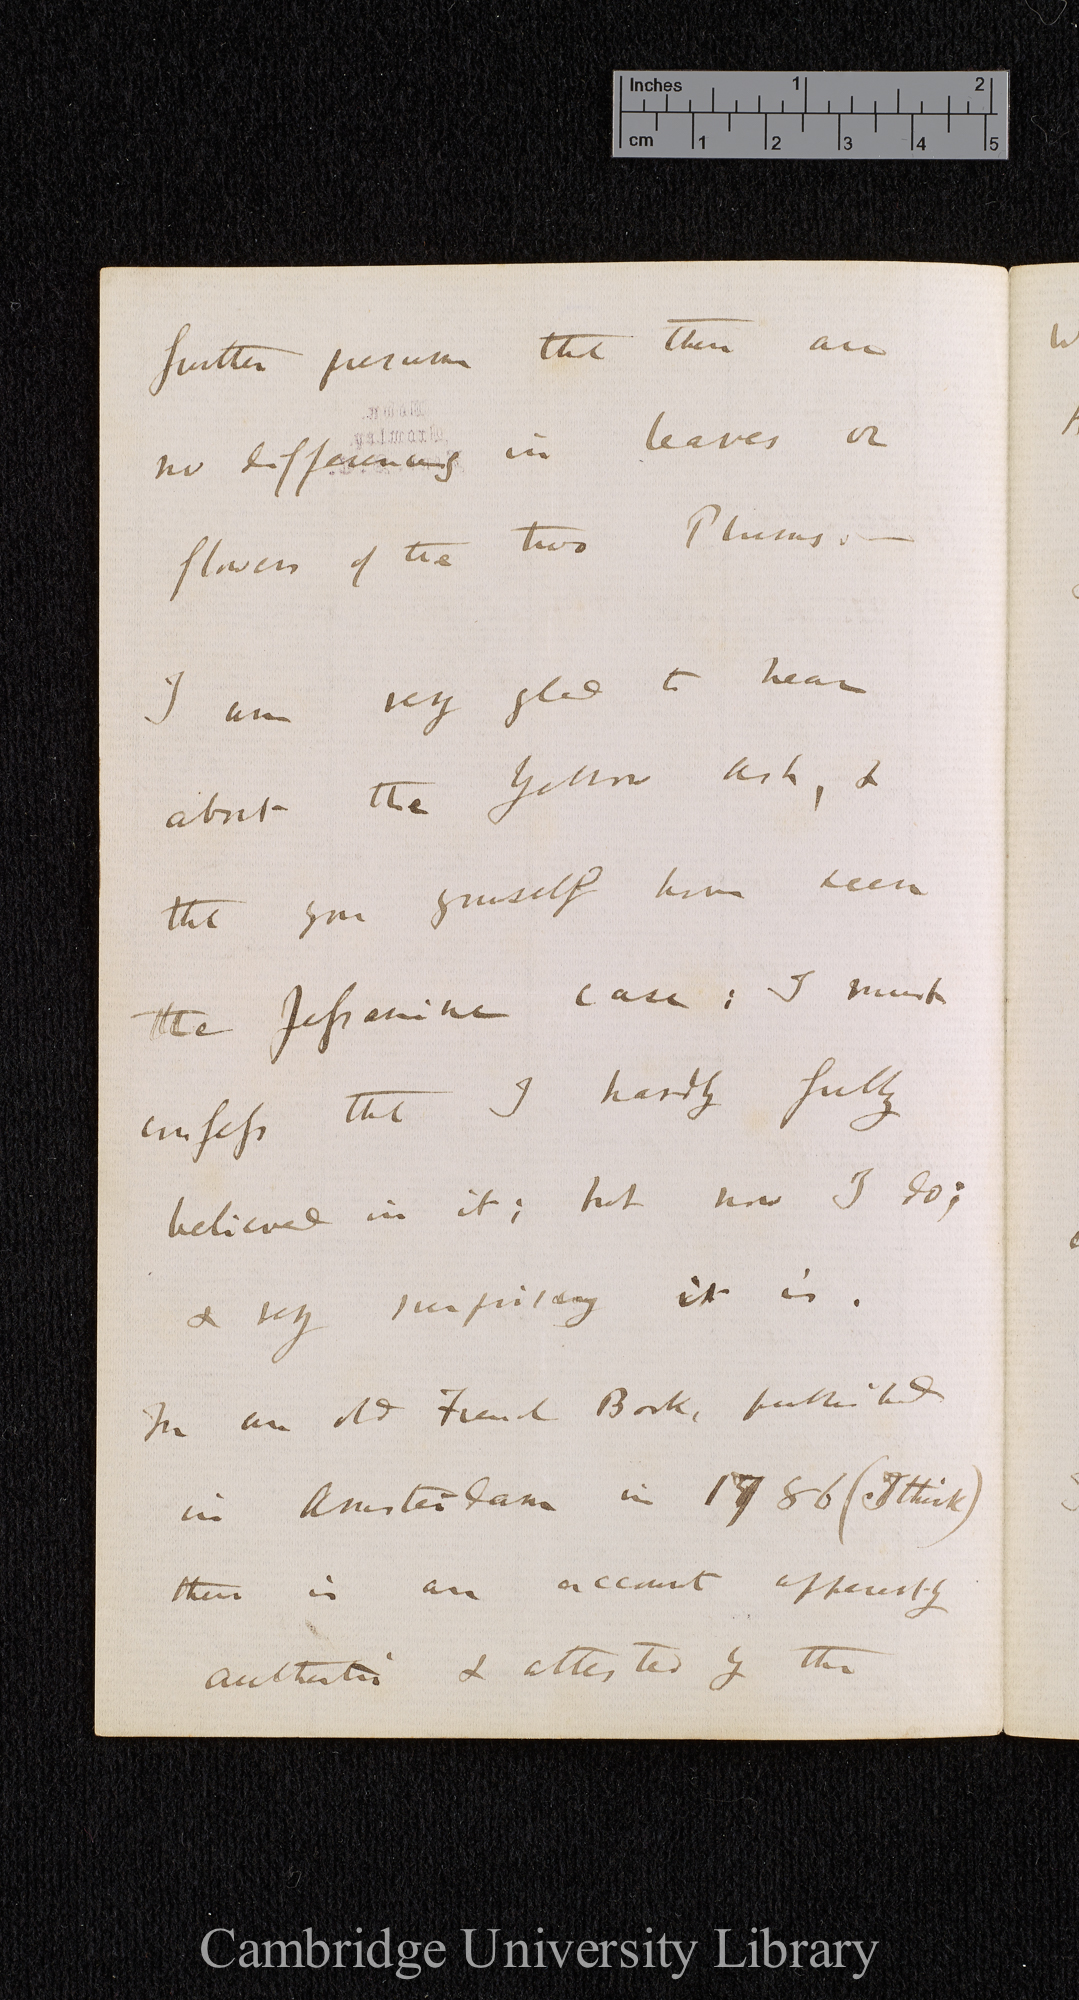 Inches 1 2
cm 1 2 3 4 5
further presume that there are
no differences in leaves or
flowers of the two Plums.—
I am very glad to hear
about the Yellow ash, &
that you yourself have seen
the Jessamine case; I must
confess that I hardly fully
believed in it; but now I do;
& very surprising it is.
In an old French Book, published
in Amsterdam in 1786 (I think)
there is an account apparently
authentic & attested by the
Cambridge University Library